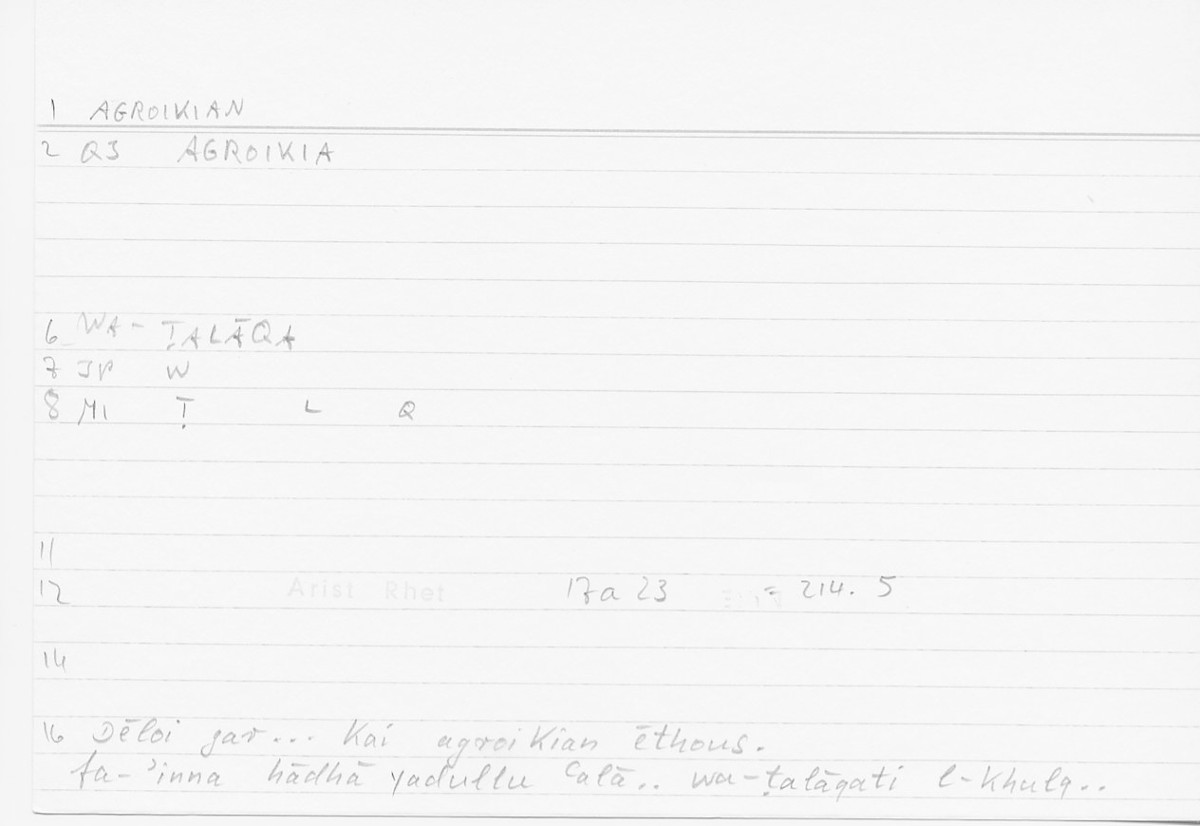 1 AGROIKIAN
2 Q3 AGROIKIA
6 WA- ṬALĀQA
7 IP W
8 M1 Ṭ L Q
11
12 Arist Rhet 17a 23 = 214. 5
14
16 Dēloi gar... Kai agroikian ēthous.
fa-ʾinna hādhā yadullu ʿalā.. wa-ṭalāqati l-khulq..